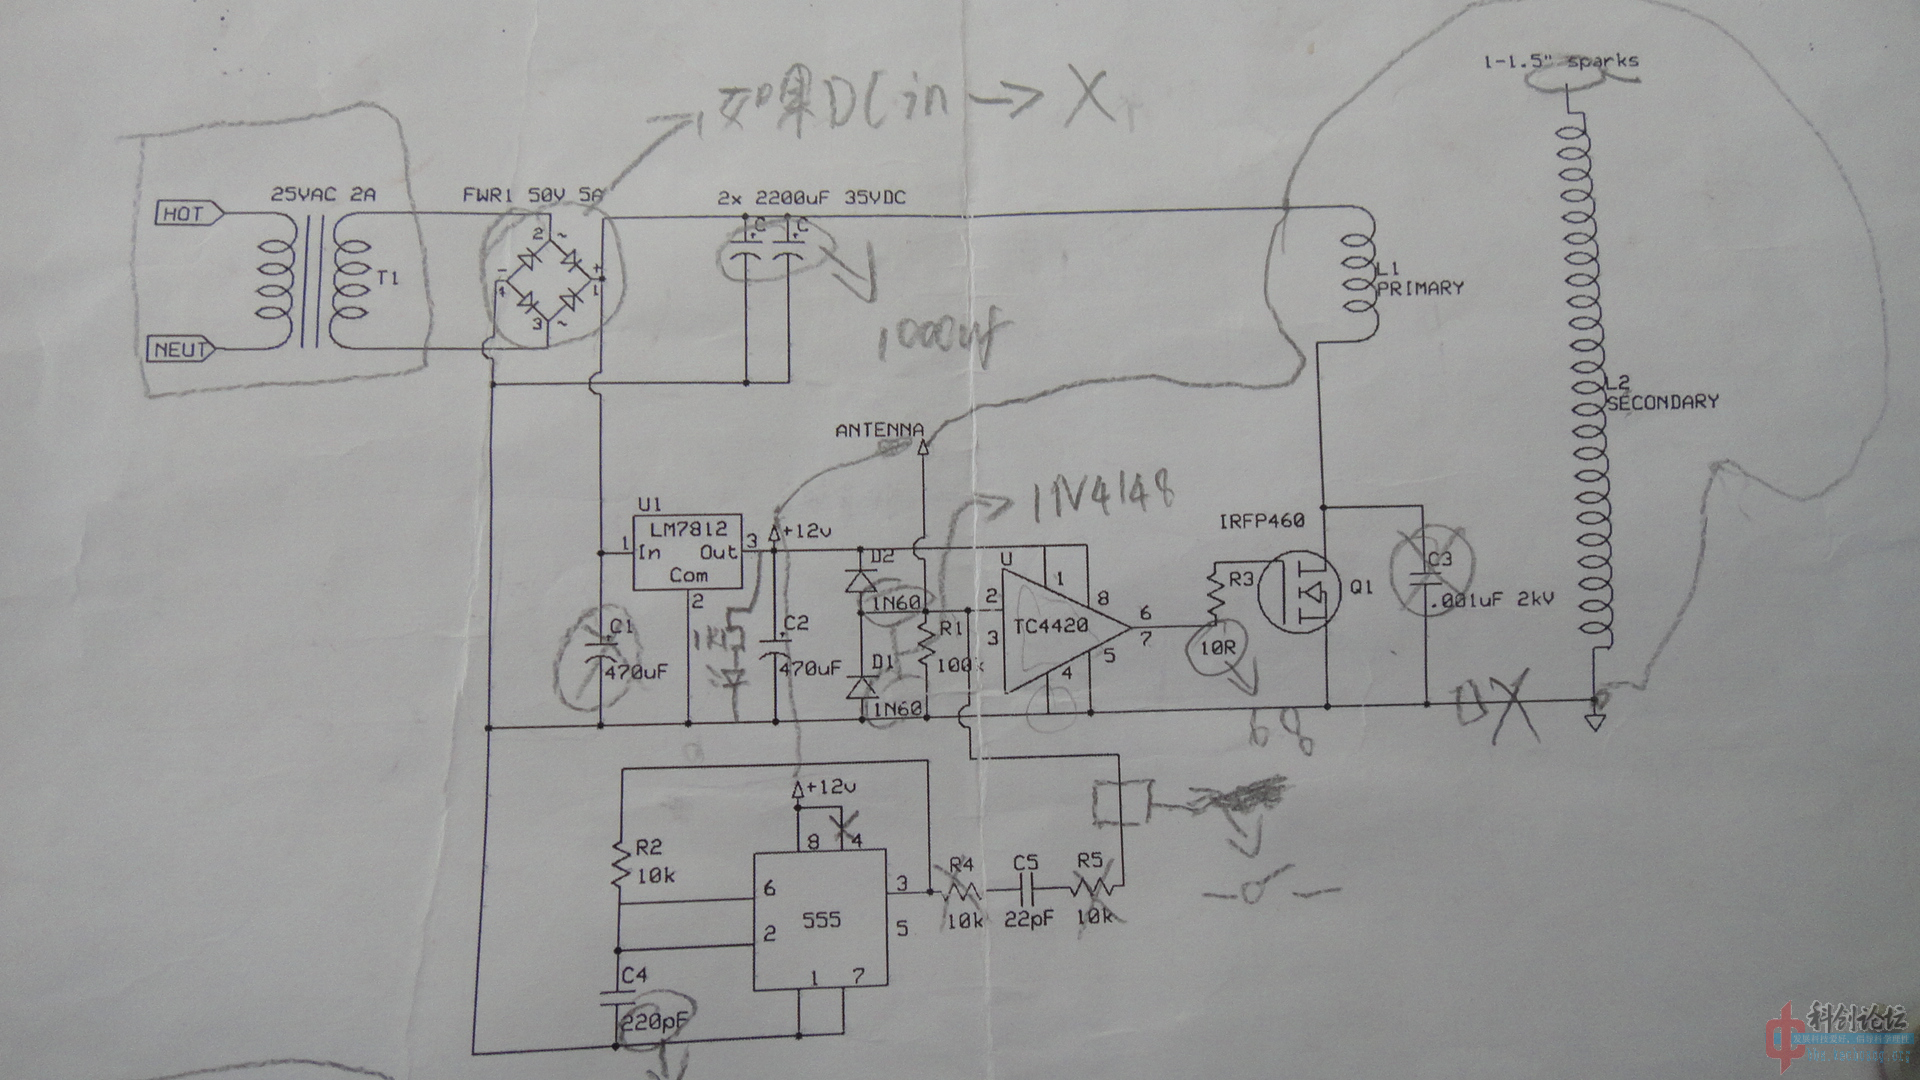 1-1.5" sparks
如果DC in → X
25VAC 2A
FWR1 50V 5A
2x 2200uF 35VDC
HOT
NEUT
T1
2
~
-
+
4
1
3
~
C
C
1000uf
L1
PRIMARY
L2
SECONDARY
ANTENNA
1N4148
U1
LM7812
1
In
Out
3
Com
2
+12v
D2
1N60
U
1
8
2
3
TC4420
6
7
5
4
IRFP460
R3
10R
Q1
C3
.001uF 2kV
C1
470uF
1K
C2
470uF
D1
1N60
R1
100k
68
X
+12v
8
4
R2
10k
6
2
555
3
5
1
7
R4
10k
C5
22pF
R5
10k
C4
220pF
科创论坛